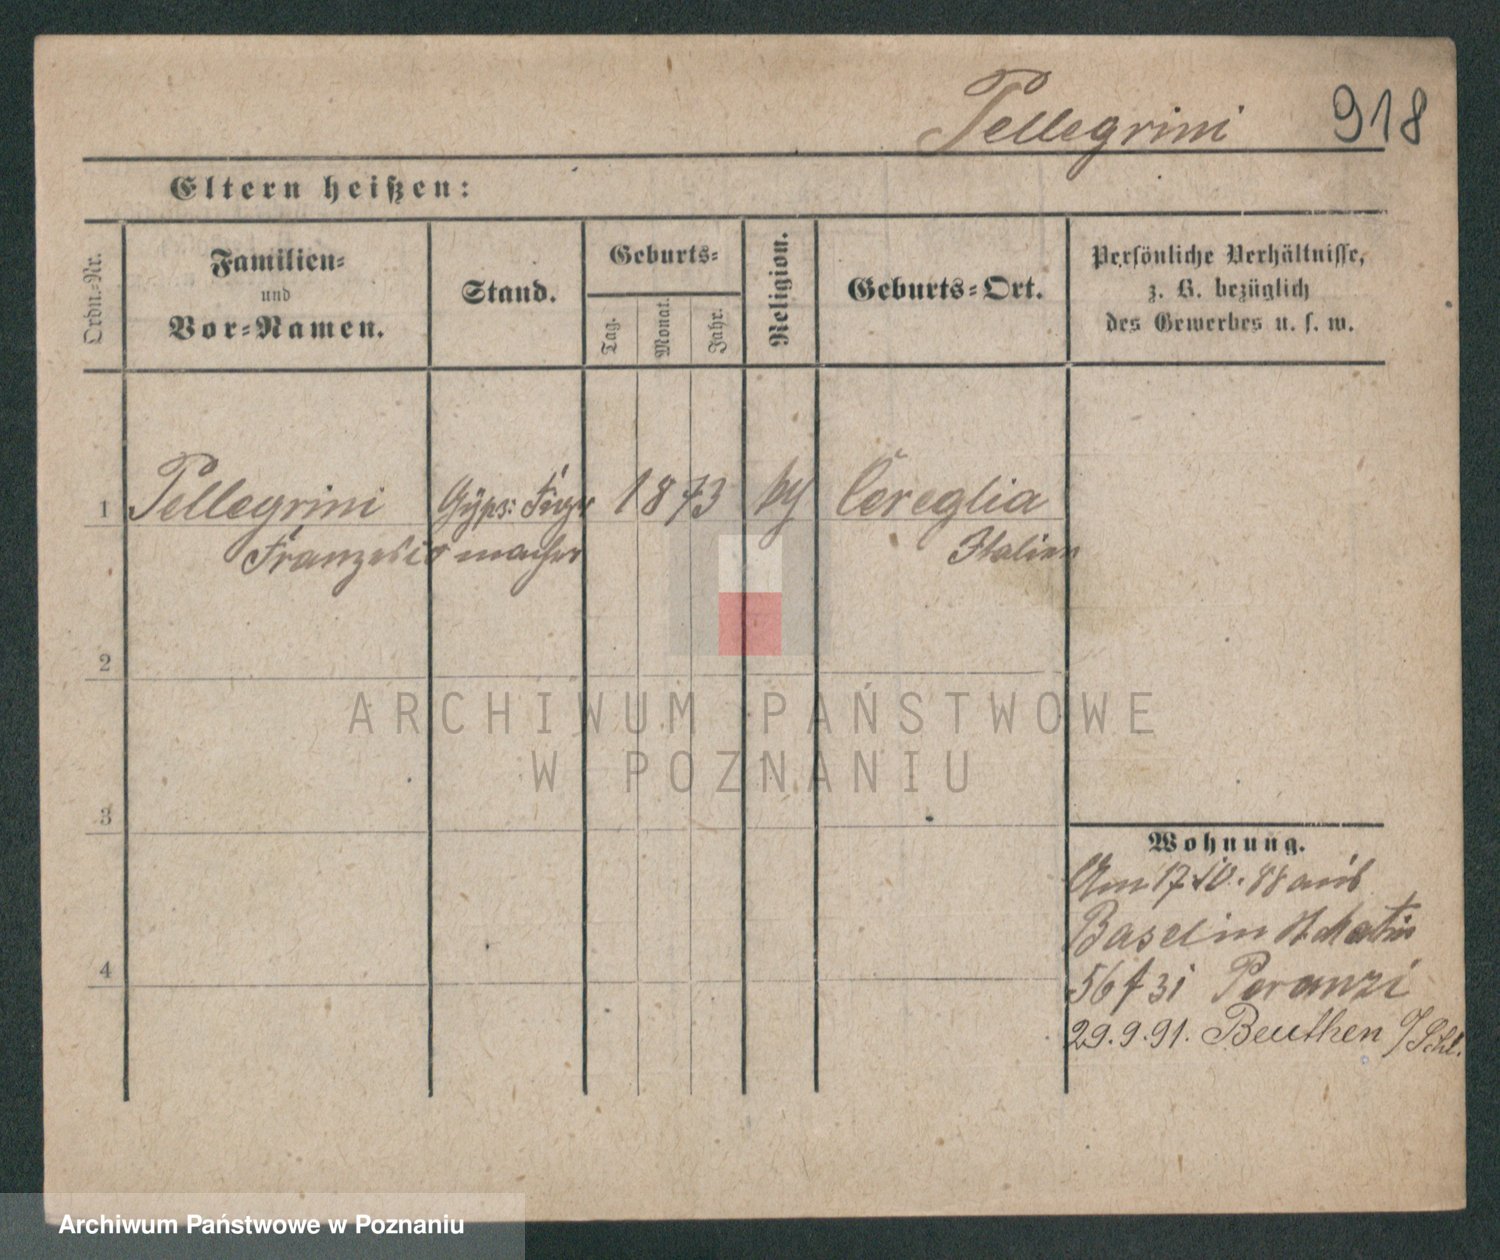 Pellegrini 918
Eltern heißen:
Ordn.-Nr.
Familien-
und
Vor-Namen.
Stand.
Geburts-
Tag.
Monat.
Jahr.
Religion.
Geburts-Ort.
Persönliche Verhältnisse,
z. B. bezüglich
des Gewerbes u. s. w.
1 Pellegrini Gÿps: Figur 1873 Cereglia
Franzesico macher Italien
2
ARCHIWUM PAŃSTWOWE
W POZNANIU
3
Wohnung.
Am 17.10.88 aus
Basel in St Matin
56 f zi Peranzi
4
29.9.91. Beuthen O/Schl.
Archiwum Państwowe w Poznaniu